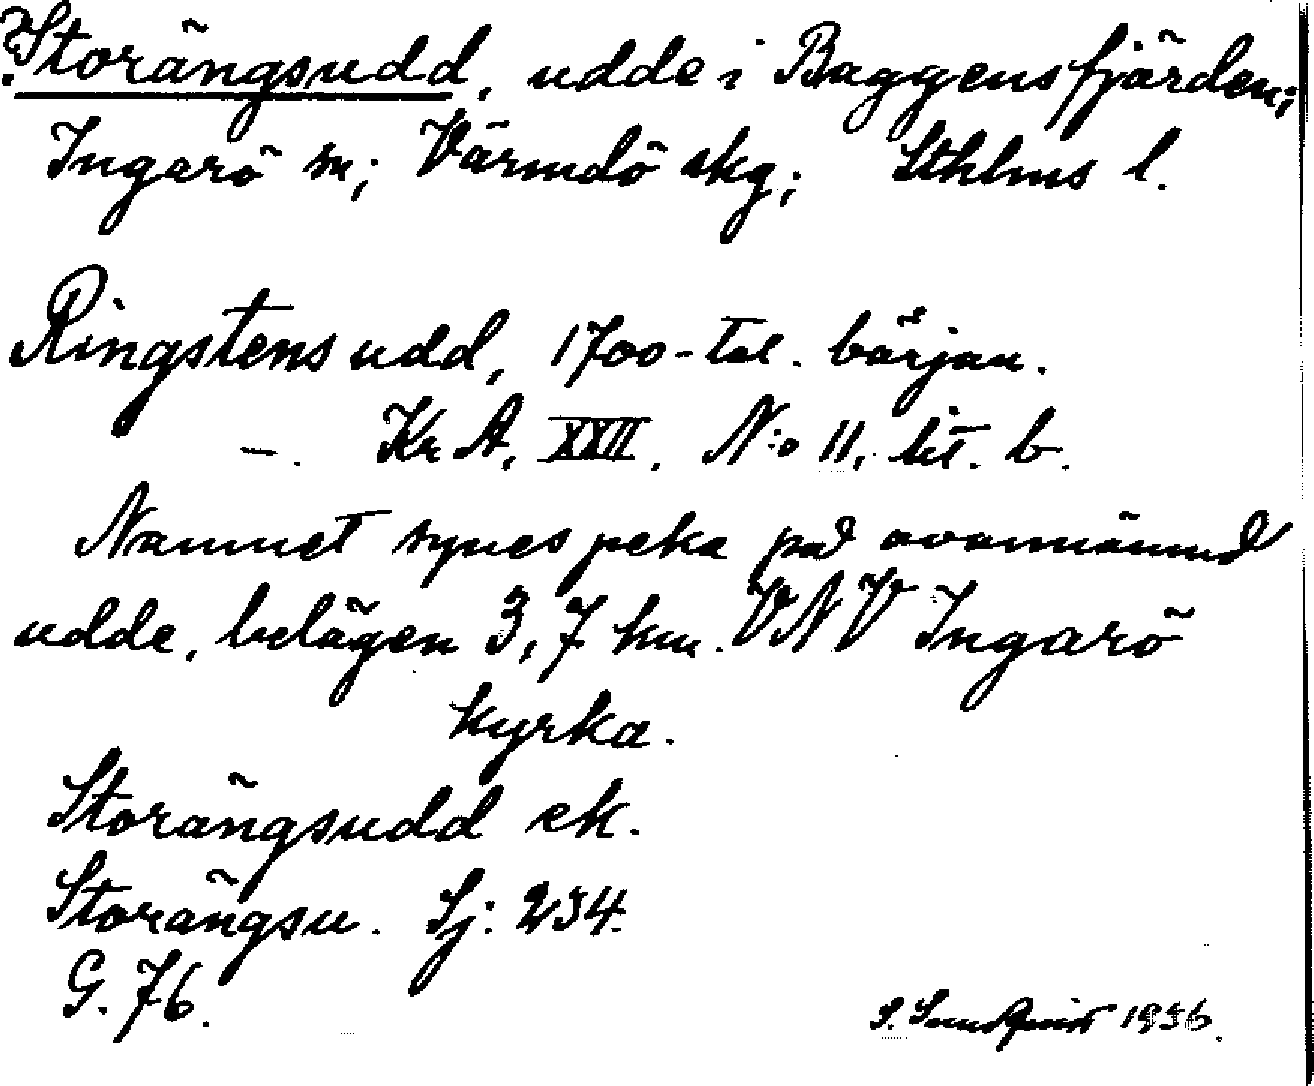 ?Storängsudd, udde i Baggensfjärden;
Ingarö sn; Värmdö skg; Sthlms l.
Ringstens udd, 1700-tal. början.
—. Kr A, XXII. N:o 11, lit. b.
Namnet synes peka på ovannämnd
udde, belägen 3,7 km. VNV Ingarö
kyrka.
Storängsudd ek.
Storängsu. Sj: 234.
G. 76.
S. Sundquist 1936.